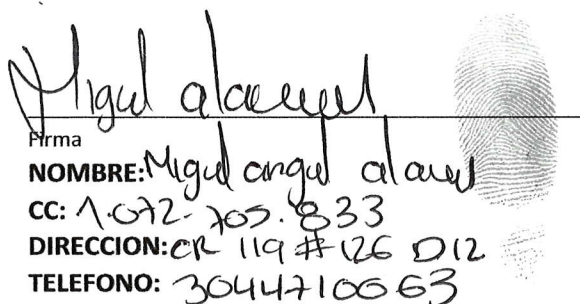 Miguel alarcon
Firma
NOMBRE: Miguel angel
CC: 1.072-705.833
DIRECCION: CR 119 # 126 D12
TELEFONO: 3044710063